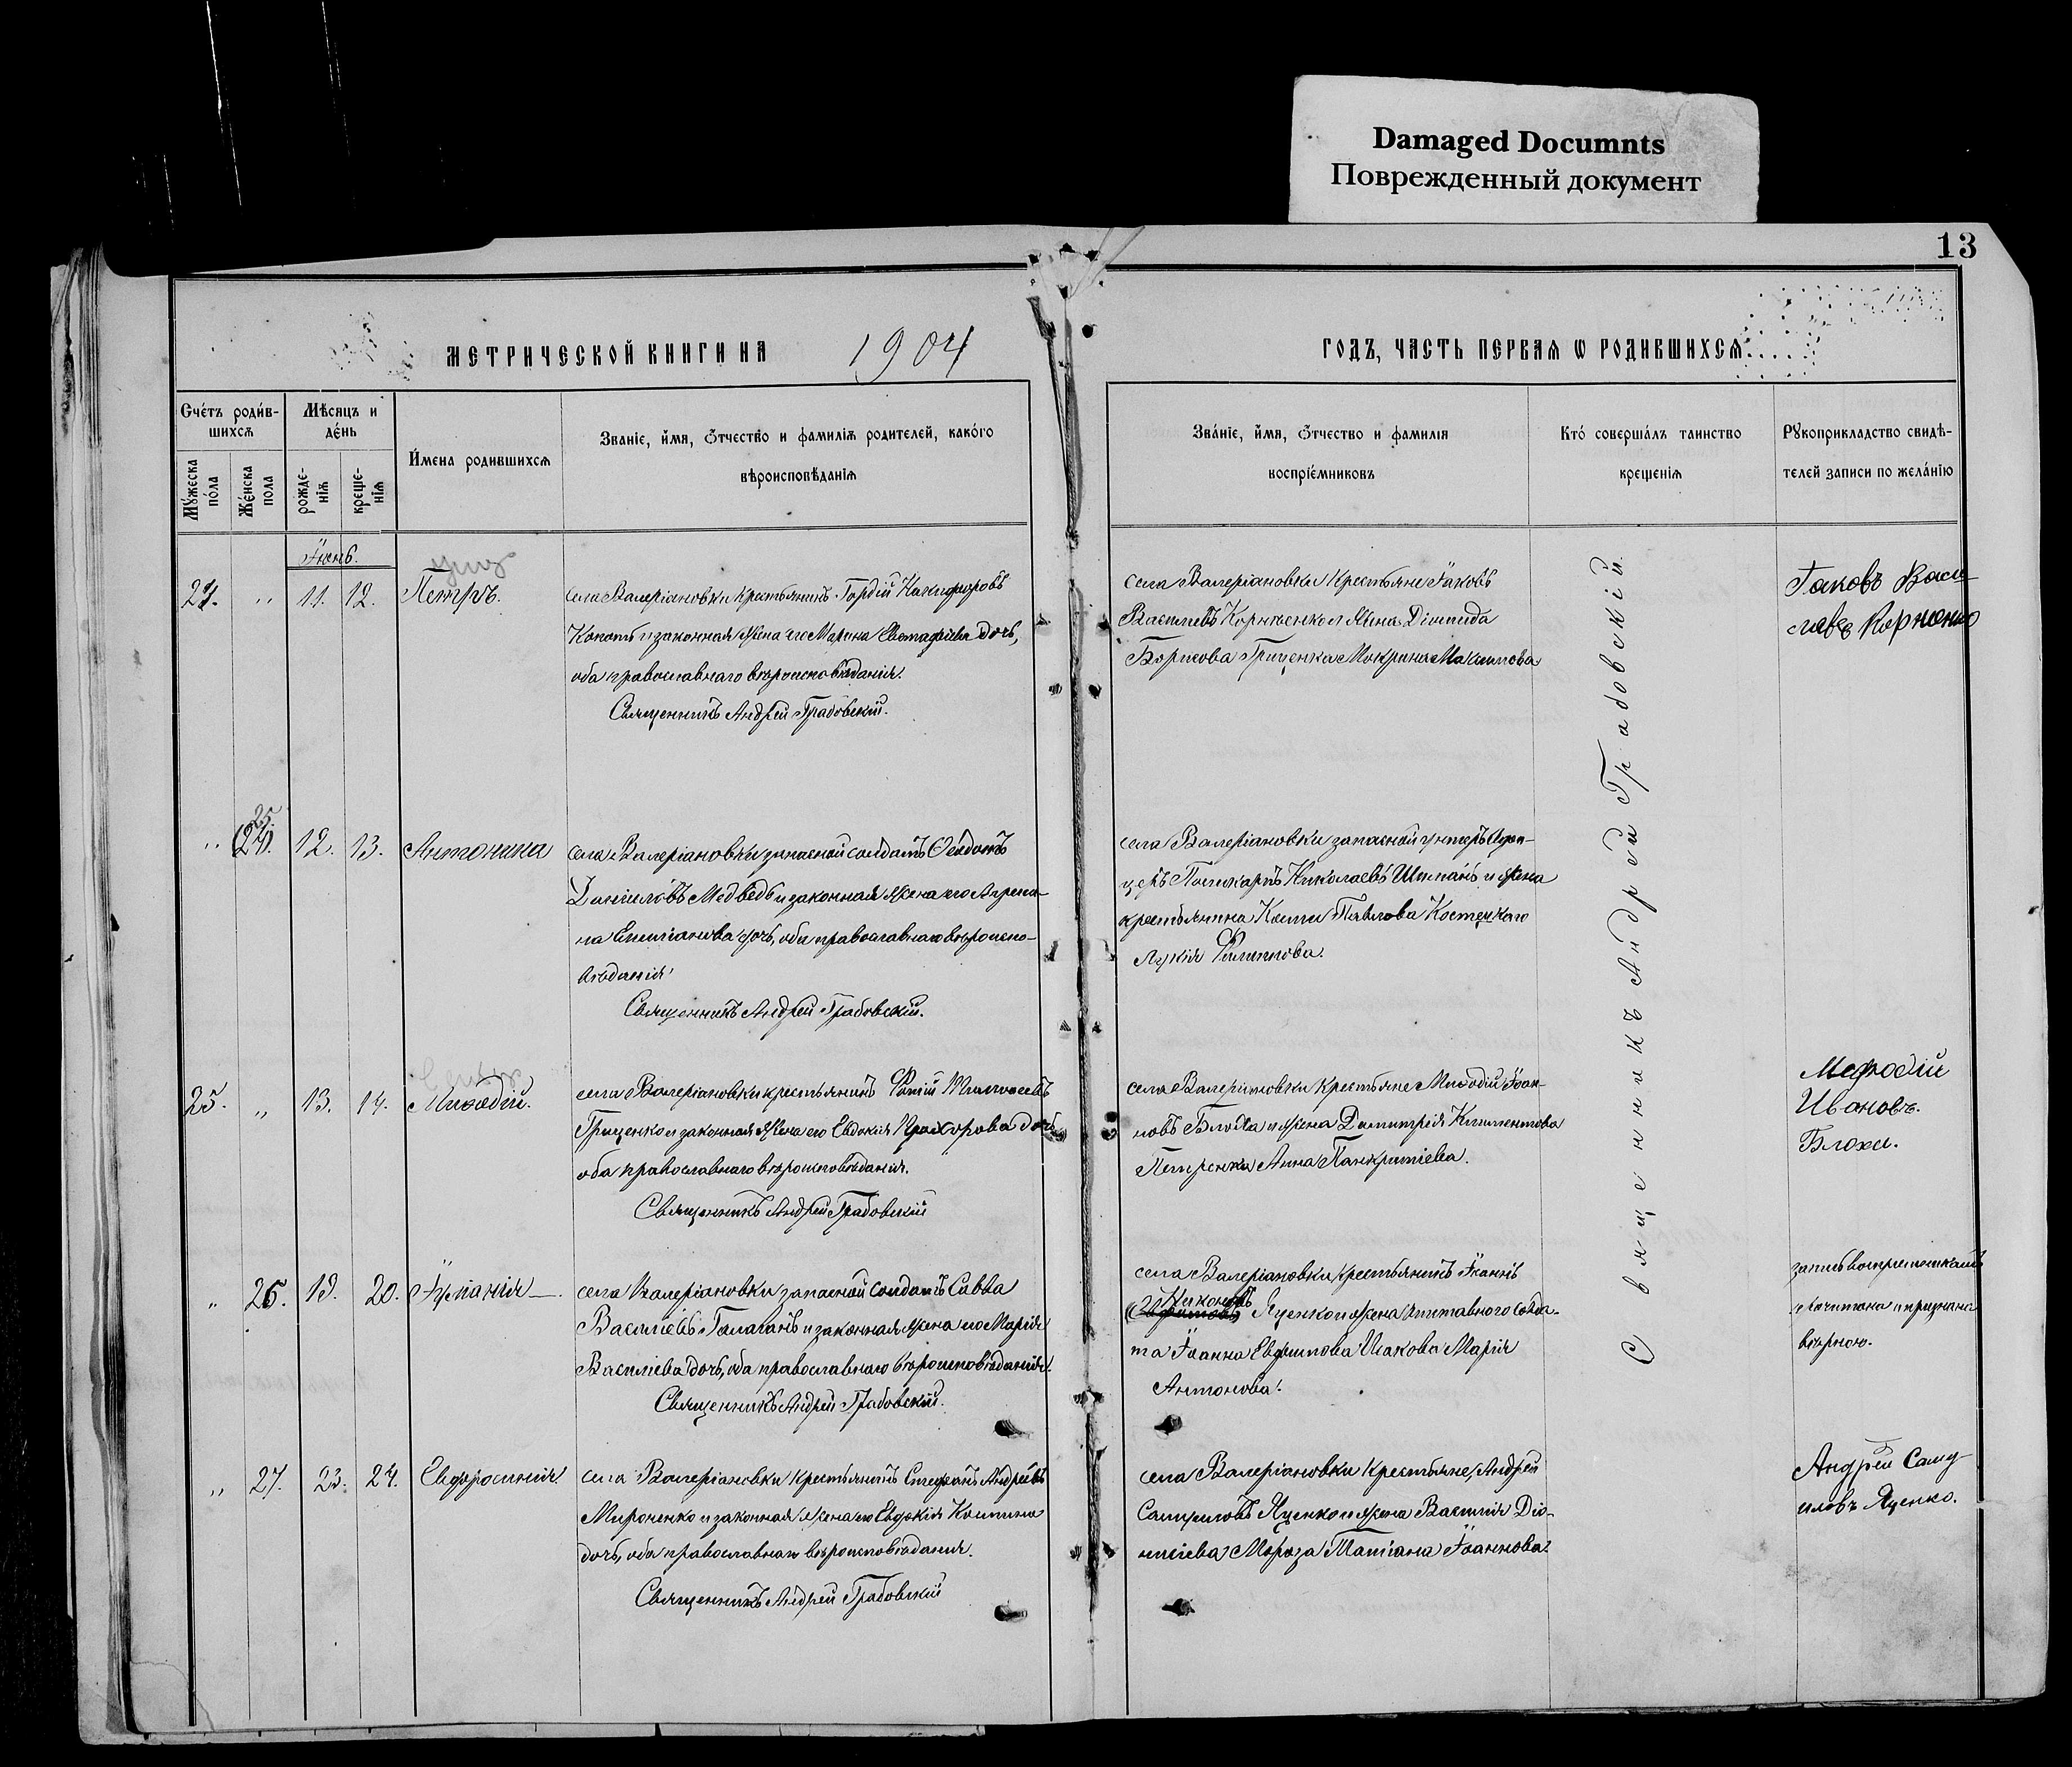 Damaged Documnts
Поврежденный документ
13
МЕТРИЧЕСКОЙ КНИГИ НА 1904
ГОДЪ, ЧАСТЬ ПЕРВАѦ Ѡ РОДИВШИХСѦ
Счéтъ роди́в-
шихсѧ
Мѣсяцъ и
дéнь
И́мена родившихсѧ
Званіе, и́мя, ѻтчество и фамиліѧ родителей, какóго
вѣроисповѣданіѧ
Мꙋ́жеска
пóла
Жéнска
пола
рожде-
нїѧ
креще-
нїѧ
Звáніе, и́мя, ѻтчество и фамиліѧ
воспріéмниковъ
Ктó совершáлъ таинство
крещенїѧ
Рꙋкоприкладство свидѣ-
телей записи по желáнію
Іюнь.
24. " 11. 12. Петръ.
села Валеріановки крестьянинъ Гордій Никифоровъ
Копоть и законная жена его Марина Евстафіева дочь,
оба православнаго вѣроисповѣданія.
Священникъ Андрей Грабовскій.
села Валеріановки крестьяне Іаковъ
Василіевъ Корніенко и жена Діомида
Борисова Гриценка Мокрина Максимова
Іаковъ Васи-
лиевъ Корнѣнко
25.
" (24). 12. 13. Антонина
села Валеріановки запасной солдатъ Ѳеодотъ
Даніиловъ Медвѣдь и законная жена его Агрипи-
на Стефанова дочь, оба православнаго вѣроиспо-
вѣданія
Священникъ Андрей Грабовскій.
села Валеріановки запасной унтеръ офи-
церъ Поликарпъ Николаевъ Шиманъ и жена
крестьянина Космы Павлова Костецкаго
Лукія Филиппова.
25. " 13. 14. Миѳодій.
села Валеріановки крестьянинъ Фотій Тимоѳеевъ
Гриценко и законная жена его Евдокія Прохорова дочь
оба православнаго вѣроисповѣданія.
Священникъ Андрей Грабовскій
села Валеріановки крестьяне Миѳодій Іоан-
новъ Блоха и жена Димитрія Климентова
Петренка Анна Панкратіева.
Мефодій
Ивановъ.
Блоха.
" 26. 19. 20. Іуліанія
села Валеріановки запасной солдатъ Савва
Василіевъ Галаганъ и законная жена его Марія
Василіева дочь, оба православнаго вѣроисповѣданія.
Священникъ Андрей Грабовскій.
села Валеріановки крестьянинъ Іоаннъ
Никоновъ
Яценко и жена отставного солда-
та Іоанна Евфимова Исакова Марія
Антонова.
запись воспреемникамъ
прочитана и признана
вѣрною.
" 27. 23. 24. Евфросинія
села Валеріановки крестьянинъ Стефанъ Андреевъ
Мироненко и законная жена его Евдокія Космина
дочь, оба православнаго вѣроисповѣданія.
Священникъ Андрей Грабовскій
села Валеріановки крестьяне, Андрей
Самуиловъ Яценко и жена Василія Діо-
нисіева Мороза Татіана Іоаннова.
Андрей Саму-
иловъ Яценко.
Священникъ Андрей Грабовскій.